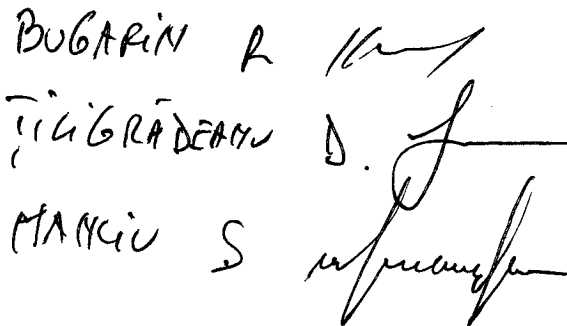 BUGARIN R
ȚIGIGRĂDEANU D.
MANCIU S